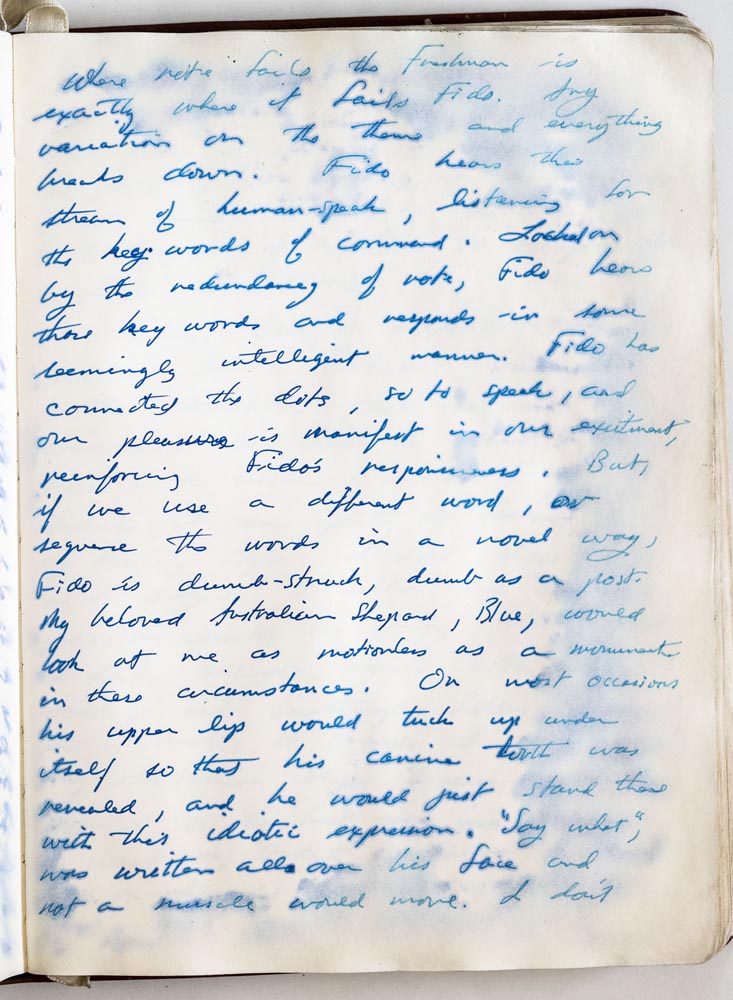 Where rote fails the Freshman is
exactly where it fails Fido. Any
variation on the theme and everything
breaks down. Fido hears this
stream of human-speak, listening for
the key words of command. Locked on
by the redundancy of rote, Fido hears
those key words and responds in some
seemingly intelligent manner. Fido has
connected the dots, so to speak, and
our pleasure is manifest in our excitment,
reenforcing Fido's responsiveness. But,
if we use a different word, or
sequense the words in a novel way,
Fido is dumb-struck, dumb as a post.
My beloved Australian Shepard, Blue, would
look at me as motionless as a monument
in these circumstances. On most occasions
his upper lip would tuck up under
itself so that his canine tooth was
revealed, and he would just stand there
with this idiotic expression. "Say what",
was written all over his face and
not a muscle would move. I don't